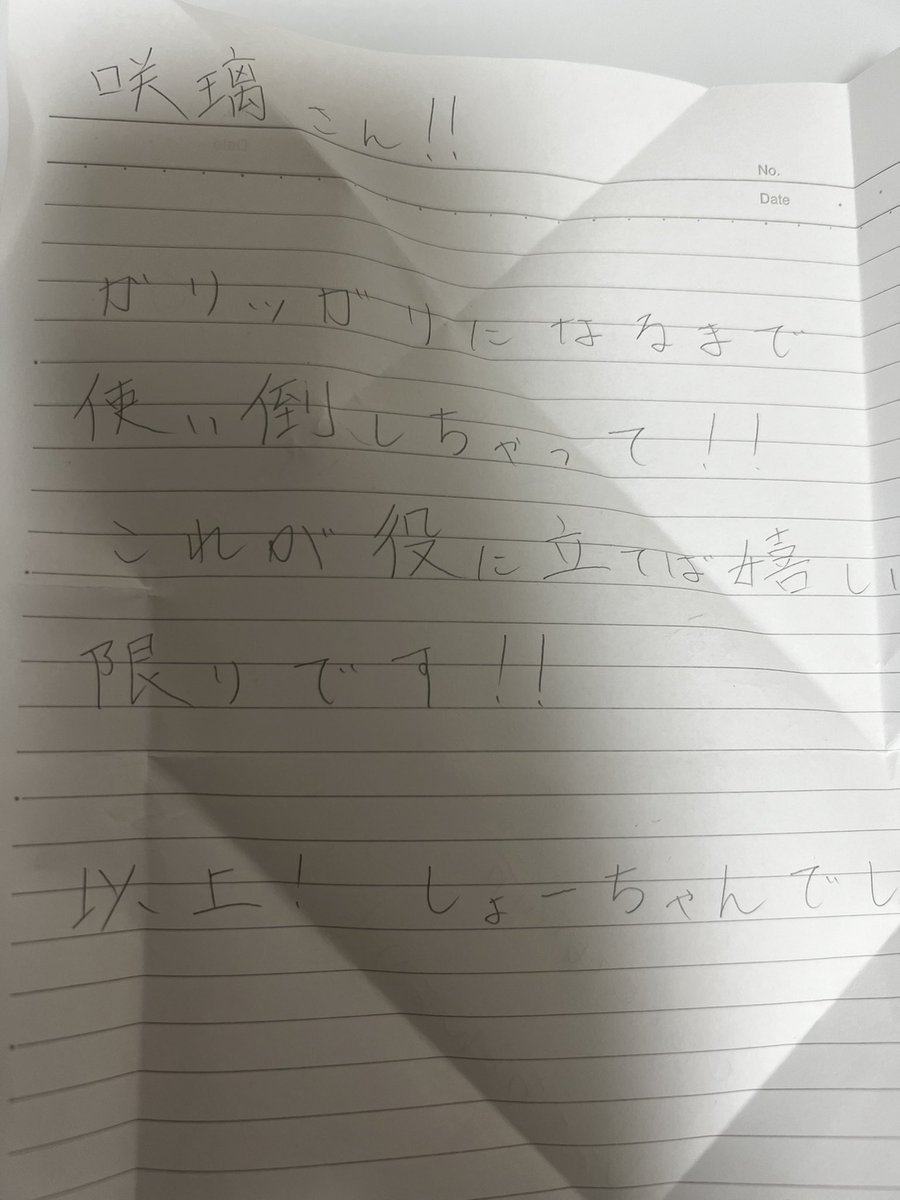 咲璃さん!!
No.
Date
ガリッガリになるまで
使い倒しちゃって!!
これが役に立てば嬉しい
限りです!!
以上! しょーちゃんでし